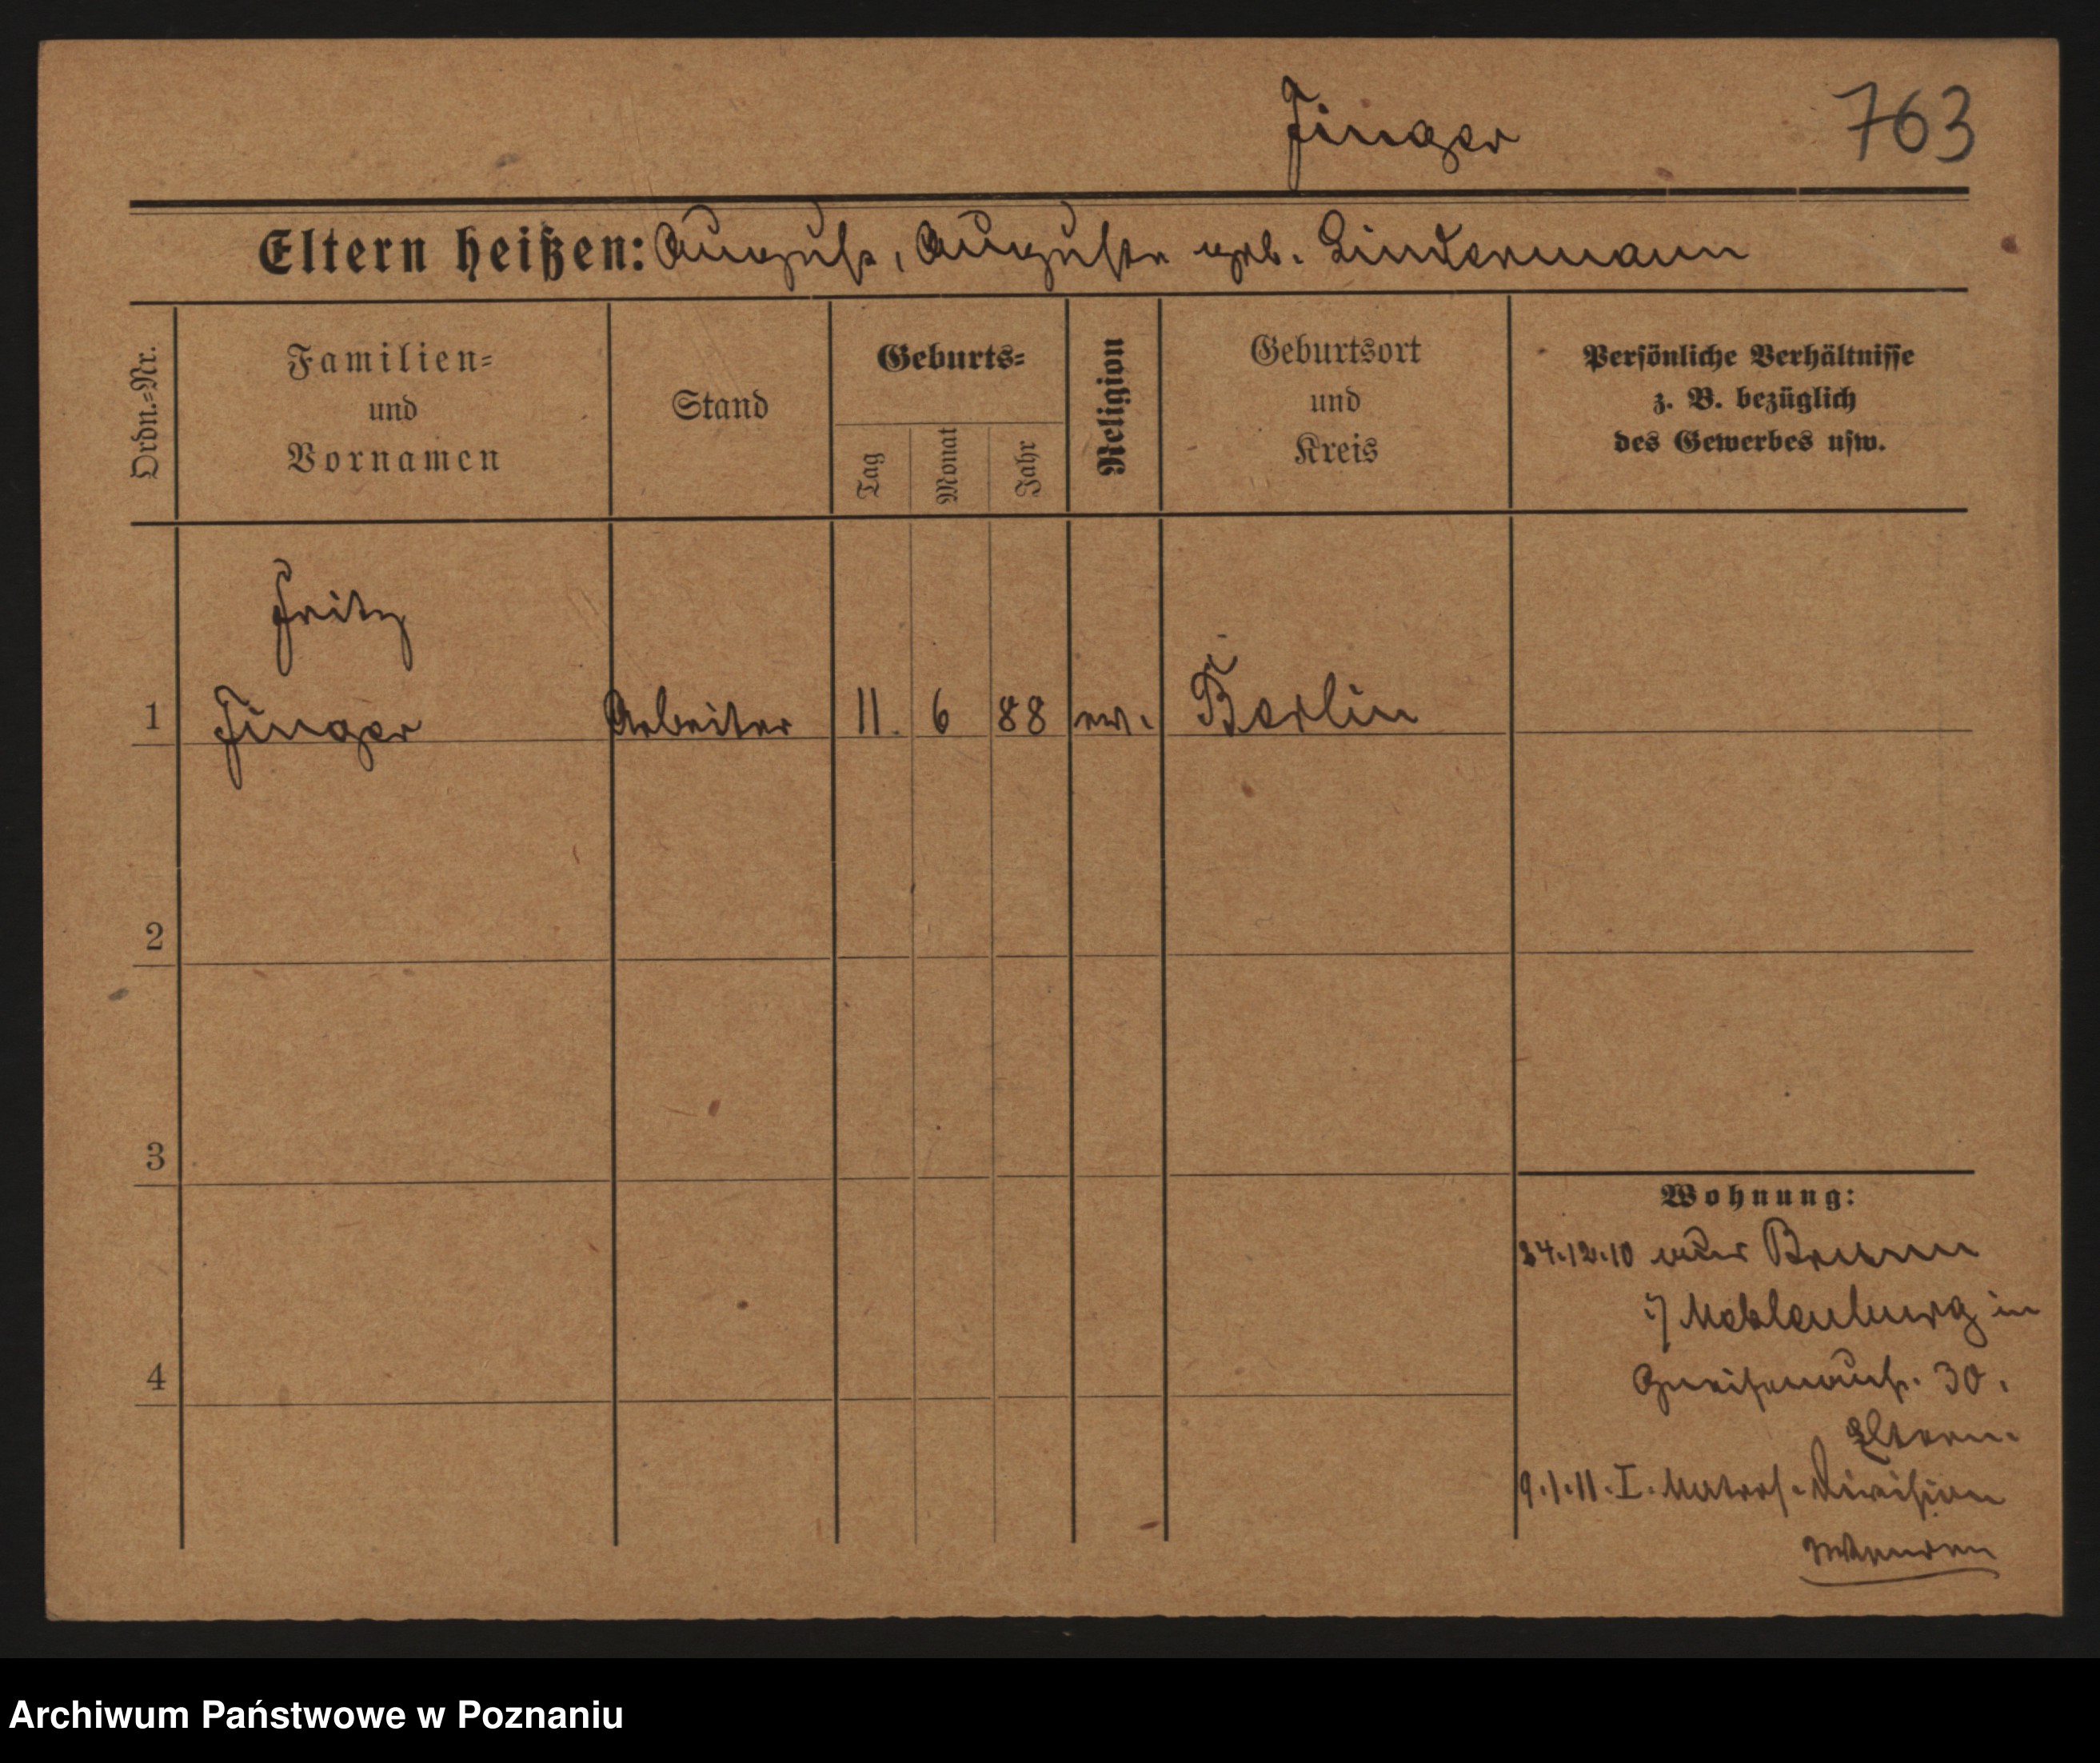 Finger 763
Eltern heißen: August, Auguste geb. Lindermann
Ordn.=Nr.
Familien=
und
Vornamen
Stand
Geburts=
Tag
Monat
Jahr
Religion
Geburtsort
und
Kreis
Persönliche Verhältnisse
z. B. bezüglich
des Gewerbes usw.
Fritz
1 Finger Arbeiter 11. 6 88 ev. Berlin
2
3
4
Wohnung:
24.12.10 aus Brunn
i/ Meklenburg in
Gneisenaustr. 30.
Eltern.
9.1.11. I. Matros. Division
Archiwum Państwowe w Poznaniu